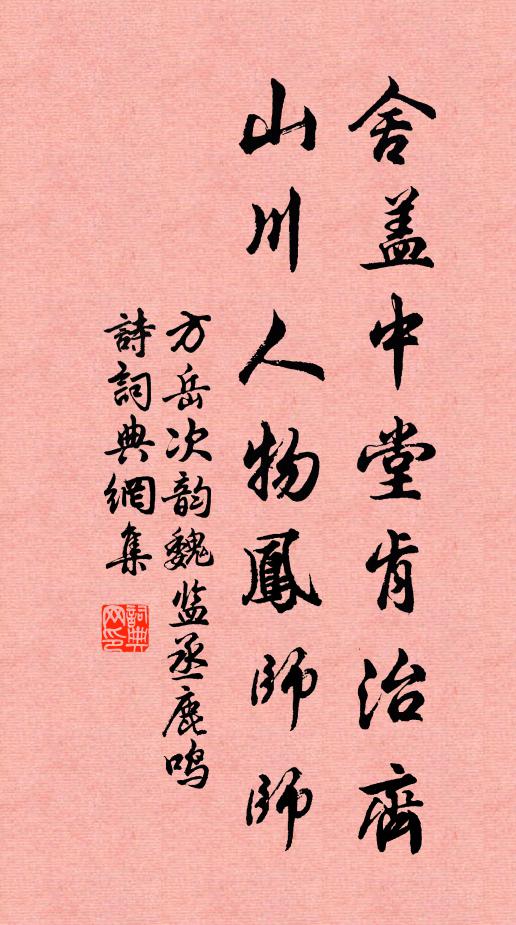 舍盖中堂肯治齊
山川人物鳳師師
方岳次韵魏监丞鹿鸣
詩詞典網集
詞典网印